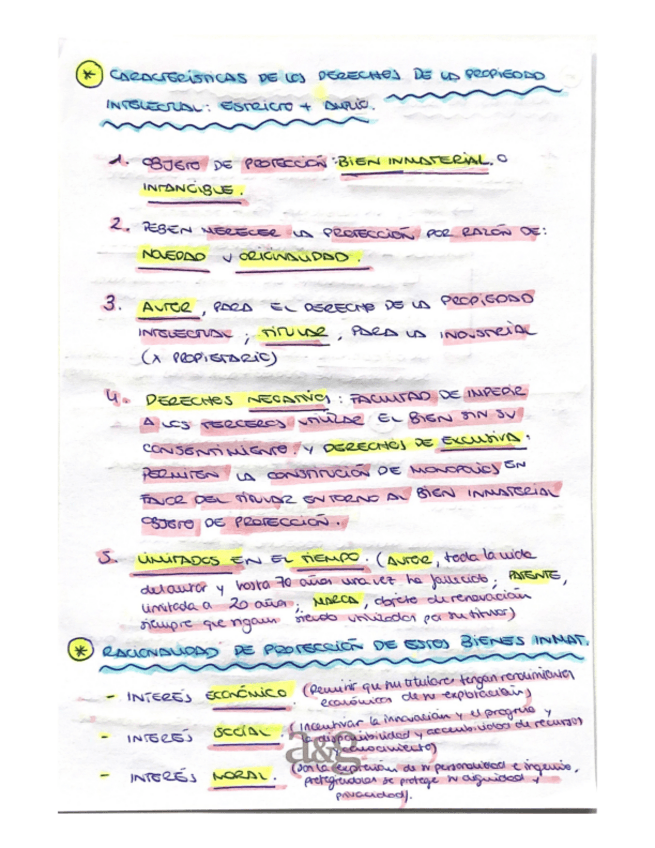 * CARACTERÍSTICAS DE LOS DERECHOS DE LA PROPIEDAD
INTELECTUAL: ESTRICTO + AMPLIO.
1. OBJETO DE PROTECCIÓN: BIEN INMATERIAL O
INTANGIBLE.
2. DEBEN MERECER LA PROTECCIÓN POR RAZÓN DE:
NOVEDAD Y ORIGINALIDAD.
3. AUTOR, PARA EL DERECHO DE LA PROPIEDAD
INTELECTUAL; TITULAR, PARA LA INDUSTRIAL
(X PROPIETARIO)
4. DERECHOS NEGATIVOS: FACULTAD DE IMPEDIR
A LOS TERCEROS UTILIZAR EL BIEN SIN SU
CONSENTIMIENTO. Y DERECHOS DE EXCLUSIVA:
PERMITEN LA CONSTITUCIÓN DE MONOPOLIOS EN
FAVOR DEL TITULAR EN TORNO AL BIEN INMATERIAL
OBJETO DE PROTECCIÓN.
5. LIMITADOS EN EL TIEMPO. (AUTOR, toda la vida
del autor y hasta 70 años una vez ha fallecido; PATENTE,
limitada a 20 años; MARCA, objeto de renovación
siempre que sigan siendo utilizados por su titular)
* RACIONALIDAD DE PROTECCIÓN DE ESTOS BIENES INMAT.
- INTERÉS ECONÓMICO. (Permitir que sus titulares tengan rendimientos
económicos de su explotación)
- INTERÉS SOCIAL. (Incentivar la innovación y el progreso y
la disponibilidad y accesibilidad de recursos
y conocimiento)
- INTERÉS MORAL. (Son la expresión de su personalidad e ingenio,
protegiéndolas se protege su dignidad y
privacidad).
a&g